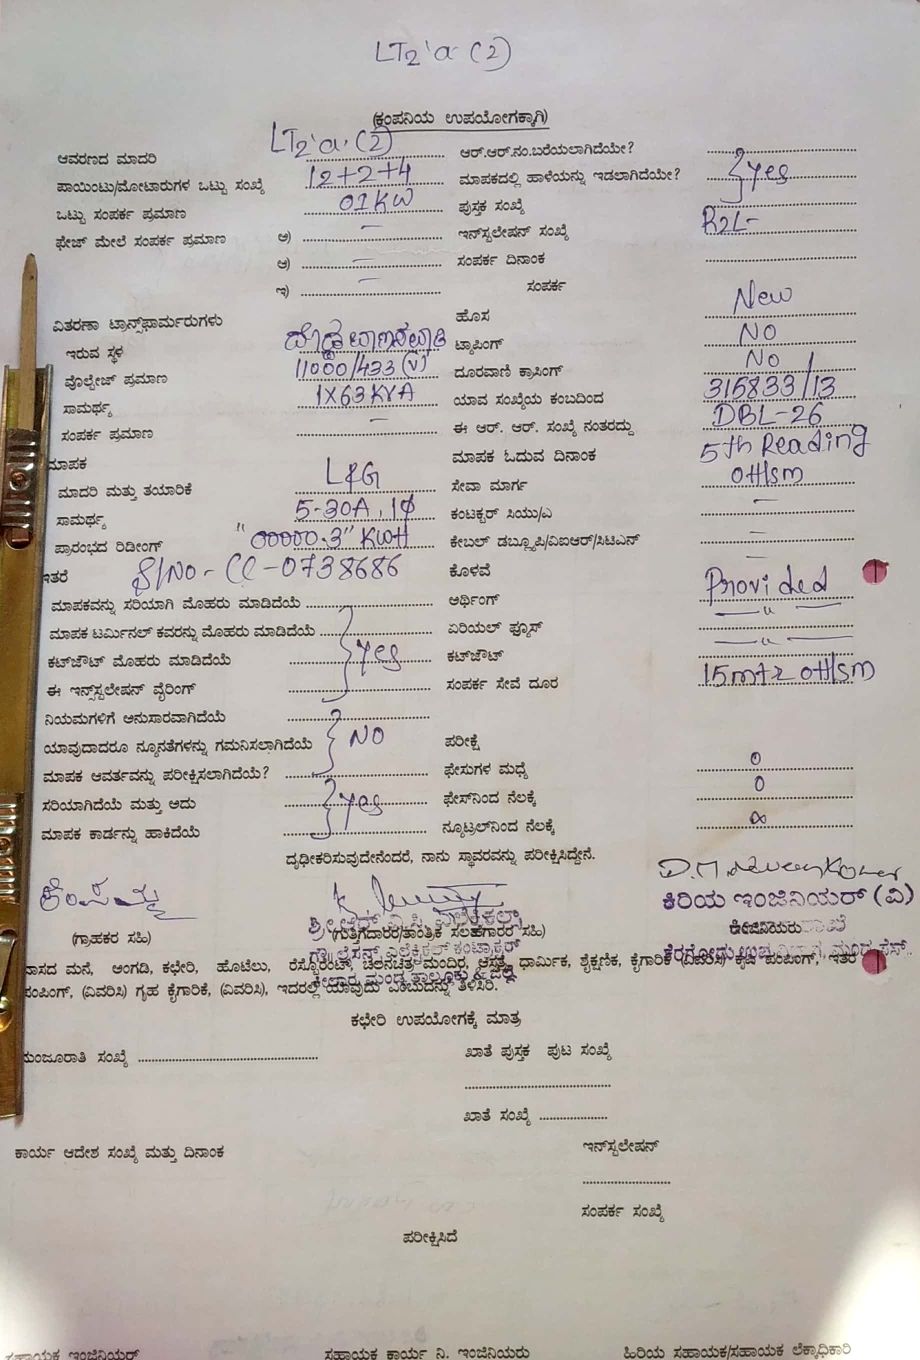 LT2'a (2)
(ಕಂಪನಿಯ ಉಪಯೋಗಕ್ಕಾಗಿ)
ಆವರಣದ ಮಾದರಿ LT2'a.(2) ಆರ್.ಆರ್.ನಂ.ಬರೆಯಲಾಗಿದೆಯೇ?
ಪಾಯಿಂಟು/ಮೋಟಾರುಗಳ ಒಟ್ಟು ಸಂಖ್ಯೆ 12+2+4 ಮಾಪಕದಲ್ಲಿ ಹಾಳೆಯನ್ನು ಇಡಲಾಗಿದೆಯೇ? } yes
ಒಟ್ಟು ಸಂಪರ್ಕ ಪ್ರಮಾಣ 01KW ಪುಸ್ತಕ ಸಂಖ್ಯೆ
ಫೇಜ್ ಮೇಲೆ ಸಂಪರ್ಕ ಪ್ರಮಾಣ ಅ) — ಇನ್‌ಸ್ಟಲೇಷನ್ ಸಂಖ್ಯೆ R2L-
ಆ) — ಸಂಪರ್ಕ ದಿನಾಂಕ
ಇ) — ಸಂಪರ್ಕ
ವಿತರಣಾ ಟ್ರಾನ್ಸ್‌ಫಾರ್ಮರುಗಳು ಹೊಸ New
ಇರುವ ಸ್ಥಳ ಟ್ಯಾಪಿಂಗ್ NO
ವೊಲ್ಟೇಜ್ ಪ್ರಮಾಣ 11000/433 (V) ದೂರವಾಣಿ ಕ್ರಾಸಿಂಗ್ NO
ಸಾಮರ್ಥ್ಯ 1X63KVA ಯಾವ ಸಂಖ್ಯೆಯ ಕಂಬದಿಂದ 315833/13
ಸಂಪರ್ಕ ಪ್ರಮಾಣ — ಈ ಆರ್. ಆರ್. ಸಂಖ್ಯೆ ನಂತರದ್ದು DBL-26
ಮಾಪಕ ಮಾಪಕ ಓದುವ ದಿನಾಂಕ 5th Reading
ಮಾದರಿ ಮತ್ತು ತಯಾರಿಕೆ L&G ಸೇವಾ ಮಾರ್ಗ OH/sm
ಸಾಮರ್ಥ್ಯ 5-30A, 1φ ಕಂಟಕ್ಟರ್ ಸಿಯು/ಎ —
ಪ್ರಾರಂಭದ ರಿಡೀಂಗ್ "00000.3" KWH ಕೇಬಲ್ ಡಬ್ಲ್ಯೂಪಿ/ವಿಐಆರ್/ಸಿಟಿಎನ್ —
ಇತರೆ S/No - CC-0738686 ಕೊಳವೆ —
ಮಾಪಕವನ್ನು ಸರಿಯಾಗಿ ಮೊಹರು ಮಾಡಿದೆಯೆ ಅರ್ಥಿಂಗ್ Provided
ಮಾಪಕ ಟರ್ಮಿನಲ್ ಕವರನ್ನು ಮೊಹರು ಮಾಡಿದೆಯೆ ಏರಿಯಲ್ ಫ್ಯೂಸ್ — " —
ಕಟ್‌ಔಟ್ ಮೊಹರು ಮಾಡಿದೆಯೆ } yes ಕಟ್‌ಔಟ್ — " —
ಈ ಇನ್‌ಸ್ಟಲೇಷನ್ ವೈರಿಂಗ್ ಸಂಪರ್ಕ ಸೇವೆ ದೂರ 15mtr OH/sm
ನಿಯಮಗಳಿಗೆ ಅನುಸಾರವಾಗಿದೆಯೆ
ಯಾವುದಾದರೂ ನ್ಯೂನತೆಗಳನ್ನು ಗಮನಿಸಲಾಗಿದೆಯೆ } NO ಪರೀಕ್ಷೆ
ಮಾಪಕ ಆವರ್ತವನ್ನು ಪರೀಕ್ಷಿಸಲಾಗಿದೆಯೆ? ಫೇಸುಗಳ ಮಧ್ಯೆ 0
ಸರಿಯಾಗಿದೆಯೆ ಮತ್ತು ಅದು } yes ಫೇಸ್‌ನಿಂದ ನೆಲಕ್ಕೆ 0
ಮಾಪಕ ಕಾರ್ಡನ್ನು ಹಾಕಿದೆಯೆ ನ್ಯೂಟ್ರಲ್‌ನಿಂದ ನೆಲಕ್ಕೆ ∞
ದೃಢೀಕರಿಸುವುದೇನೆಂದರೆ, ನಾನು ಸ್ಥಾವರವನ್ನು ಪರೀಕ್ಷಿಸಿದ್ದೇನೆ.
ಕಿರಿಯ ಇಂಜಿನಿಯರ್ (ವಿ)
(ಗ್ರಾಹಕರ ಸಹಿ) (ಗುತ್ತಿಗೆದಾರರ/ತಾಂತ್ರಿಕ ಸಲಹೆಗಾರರ ಸಹಿ)
ವಾಸದ ಮನೆ, ಅಂಗಡಿ, ಕಛೇರಿ, ಹೊಟೆಲು, ರೆಸ್ಟೊರೆಂಟ್, ಚಲನಚಿತ್ರ ಮಂದಿರ, ಆಸ್ಪತ್ರೆ, ಧಾರ್ಮಿಕ, ಶೈಕ್ಷಣಿಕ, ಕೈಗಾರಿಕೆ (ವಿವರಿಸಿ) ಕೃಷಿ ಪಂಪಿಂಗ್, ಇತರೆ
ಪಂಪಿಂಗ್, (ವಿವರಿಸಿ) ಗೃಹ ಕೈಗಾರಿಕೆ, (ವಿವರಿಸಿ), ಇದರಲ್ಲಿ ಯಾವುದು ಎಂಬುದನ್ನು ತಿಳಿಸಿರಿ.
ಕಛೇರಿ ಉಪಯೋಗಕ್ಕೆ ಮಾತ್ರ
ಮಂಜೂರಾತಿ ಸಂಖ್ಯೆ ಖಾತೆ ಪುಸ್ತಕ ಪುಟ ಸಂಖ್ಯೆ
ಖಾತೆ ಸಂಖ್ಯೆ
ಕಾರ್ಯ ಆದೇಶ ಸಂಖ್ಯೆ ಮತ್ತು ದಿನಾಂಕ ಇನ್‌ಸ್ಟಲೇಷನ್
ಸಂಪರ್ಕ ಸಂಖ್ಯೆ
ಪರೀಕ್ಷಿಸಿದೆ
ಸಹಾಯಕ ಇಂಜಿನಿಯರ್ ಸಹಾಯಕ ಕಾರ್ಯ ನಿ. ಇಂಜಿನಿಯರು ಹಿರಿಯ ಸಹಾಯಕ/ಸಹಾಯಕ ಲೆಕ್ಕಾಧಿಕಾರಿ